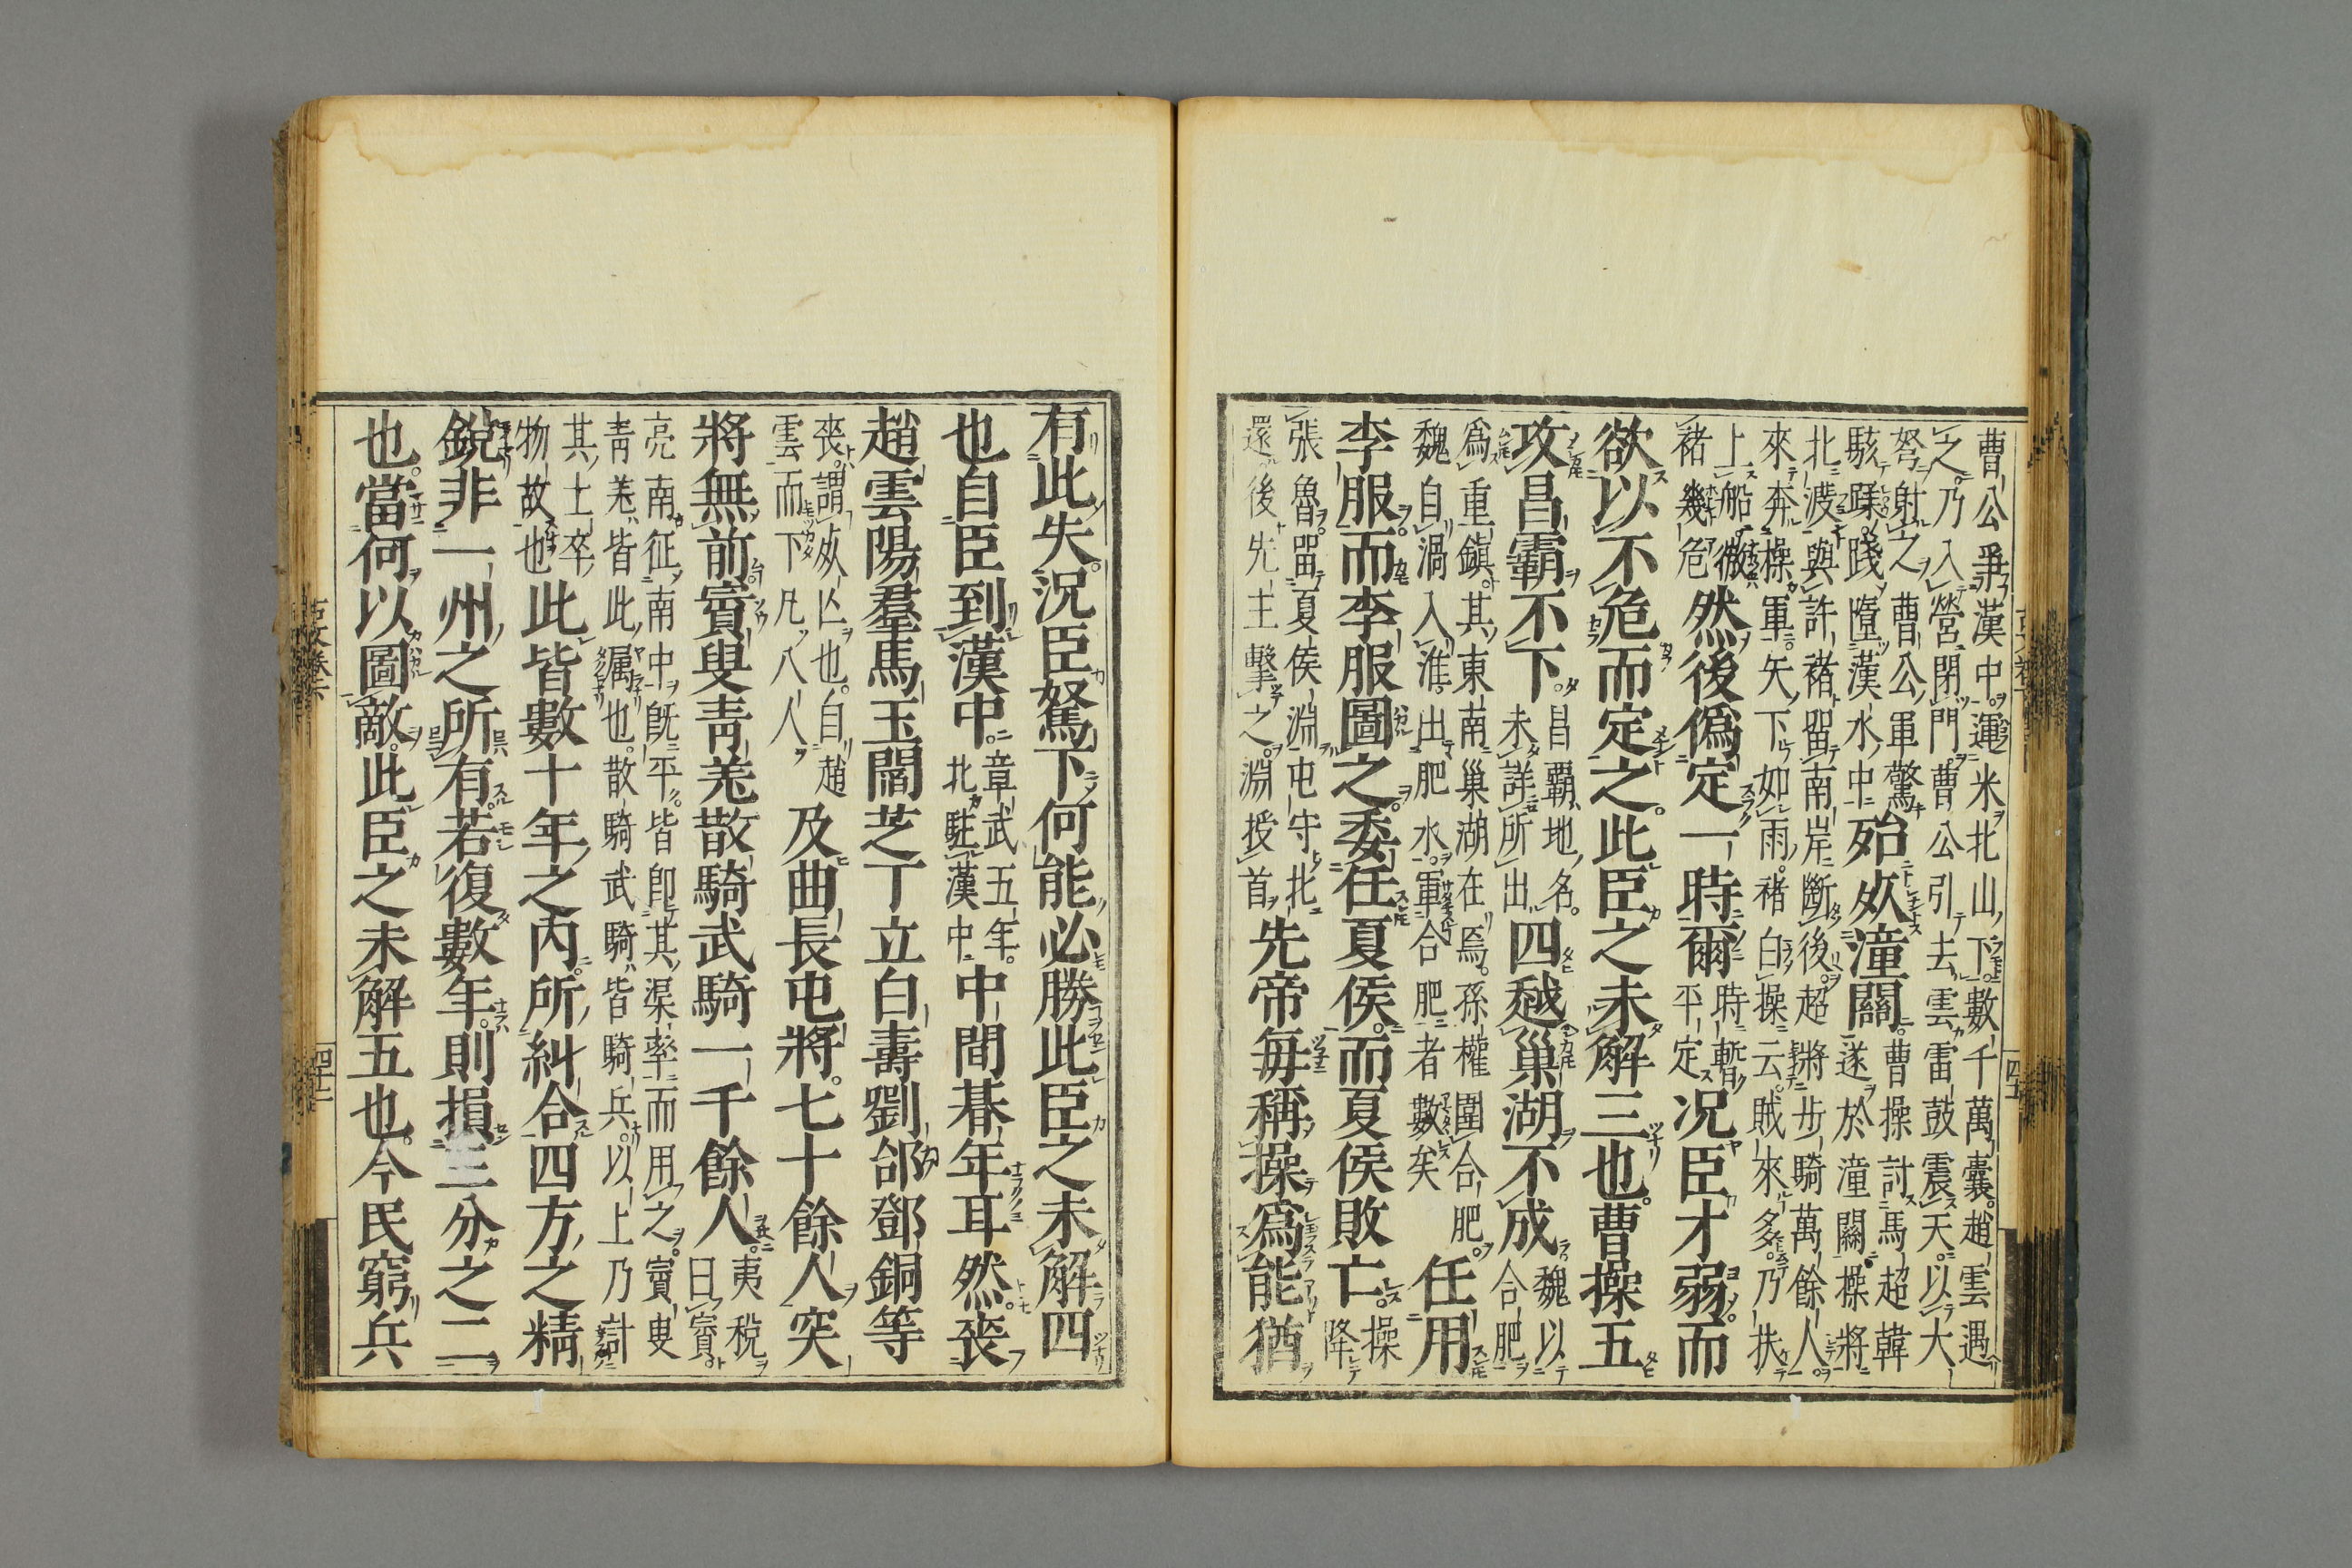 曹公爭漢中運米北山下數千萬囊趙雲遇
之乃入營閉門曹公引去雲雷鼓震天以大
弩射之曹公軍驚
駭蹂踐墮漢水中殆死潼關曹操討馬超韓
遂於潼關操將
北渡與許褚留南岸斷後超將步騎萬餘人
來奔操軍矢下如雨褚白操云賊來多乃扶
上船
褚幾危然後僞定一時爾時暫
平定況臣才弱而
欲以不危而定之此臣之未解三也曹操五
攻昌霸不下昌霸地名
未詳所出四越巢湖不成魏以
合肥
爲重鎮其東南巢湖在焉孫權圍合肥
魏自渦入淮出肥水軍合肥者數矣任用
李服而李服圖之委任夏侯而夏侯敗亡操
降
張魯留夏侯淵屯守北
還後先主擊之淵授首先帝每稱操爲能猶
有此失況臣駑下何能必勝此臣之未解四
也自臣到漢中章武五年
北駐漢中中間朞年耳然喪
趙雲陽羣馬玉閻芝丁立白壽劉郃鄧銅等
喪謂死亡也自趙
雲而下凡八人及曲長屯將七十餘人突
將無前賨叟青羌散騎武騎一千餘人夷稅
曰賨
亮南征南中既平皆即其渠率而用之賨叟
青羌皆此屬也散騎武騎皆騎兵以上乃計
其士卒
物故也此皆數十年之內所糾合四方之精
銳非一州之所有若復數年則損三分之二
也當何以圖敵此臣之未解五也今民窮兵